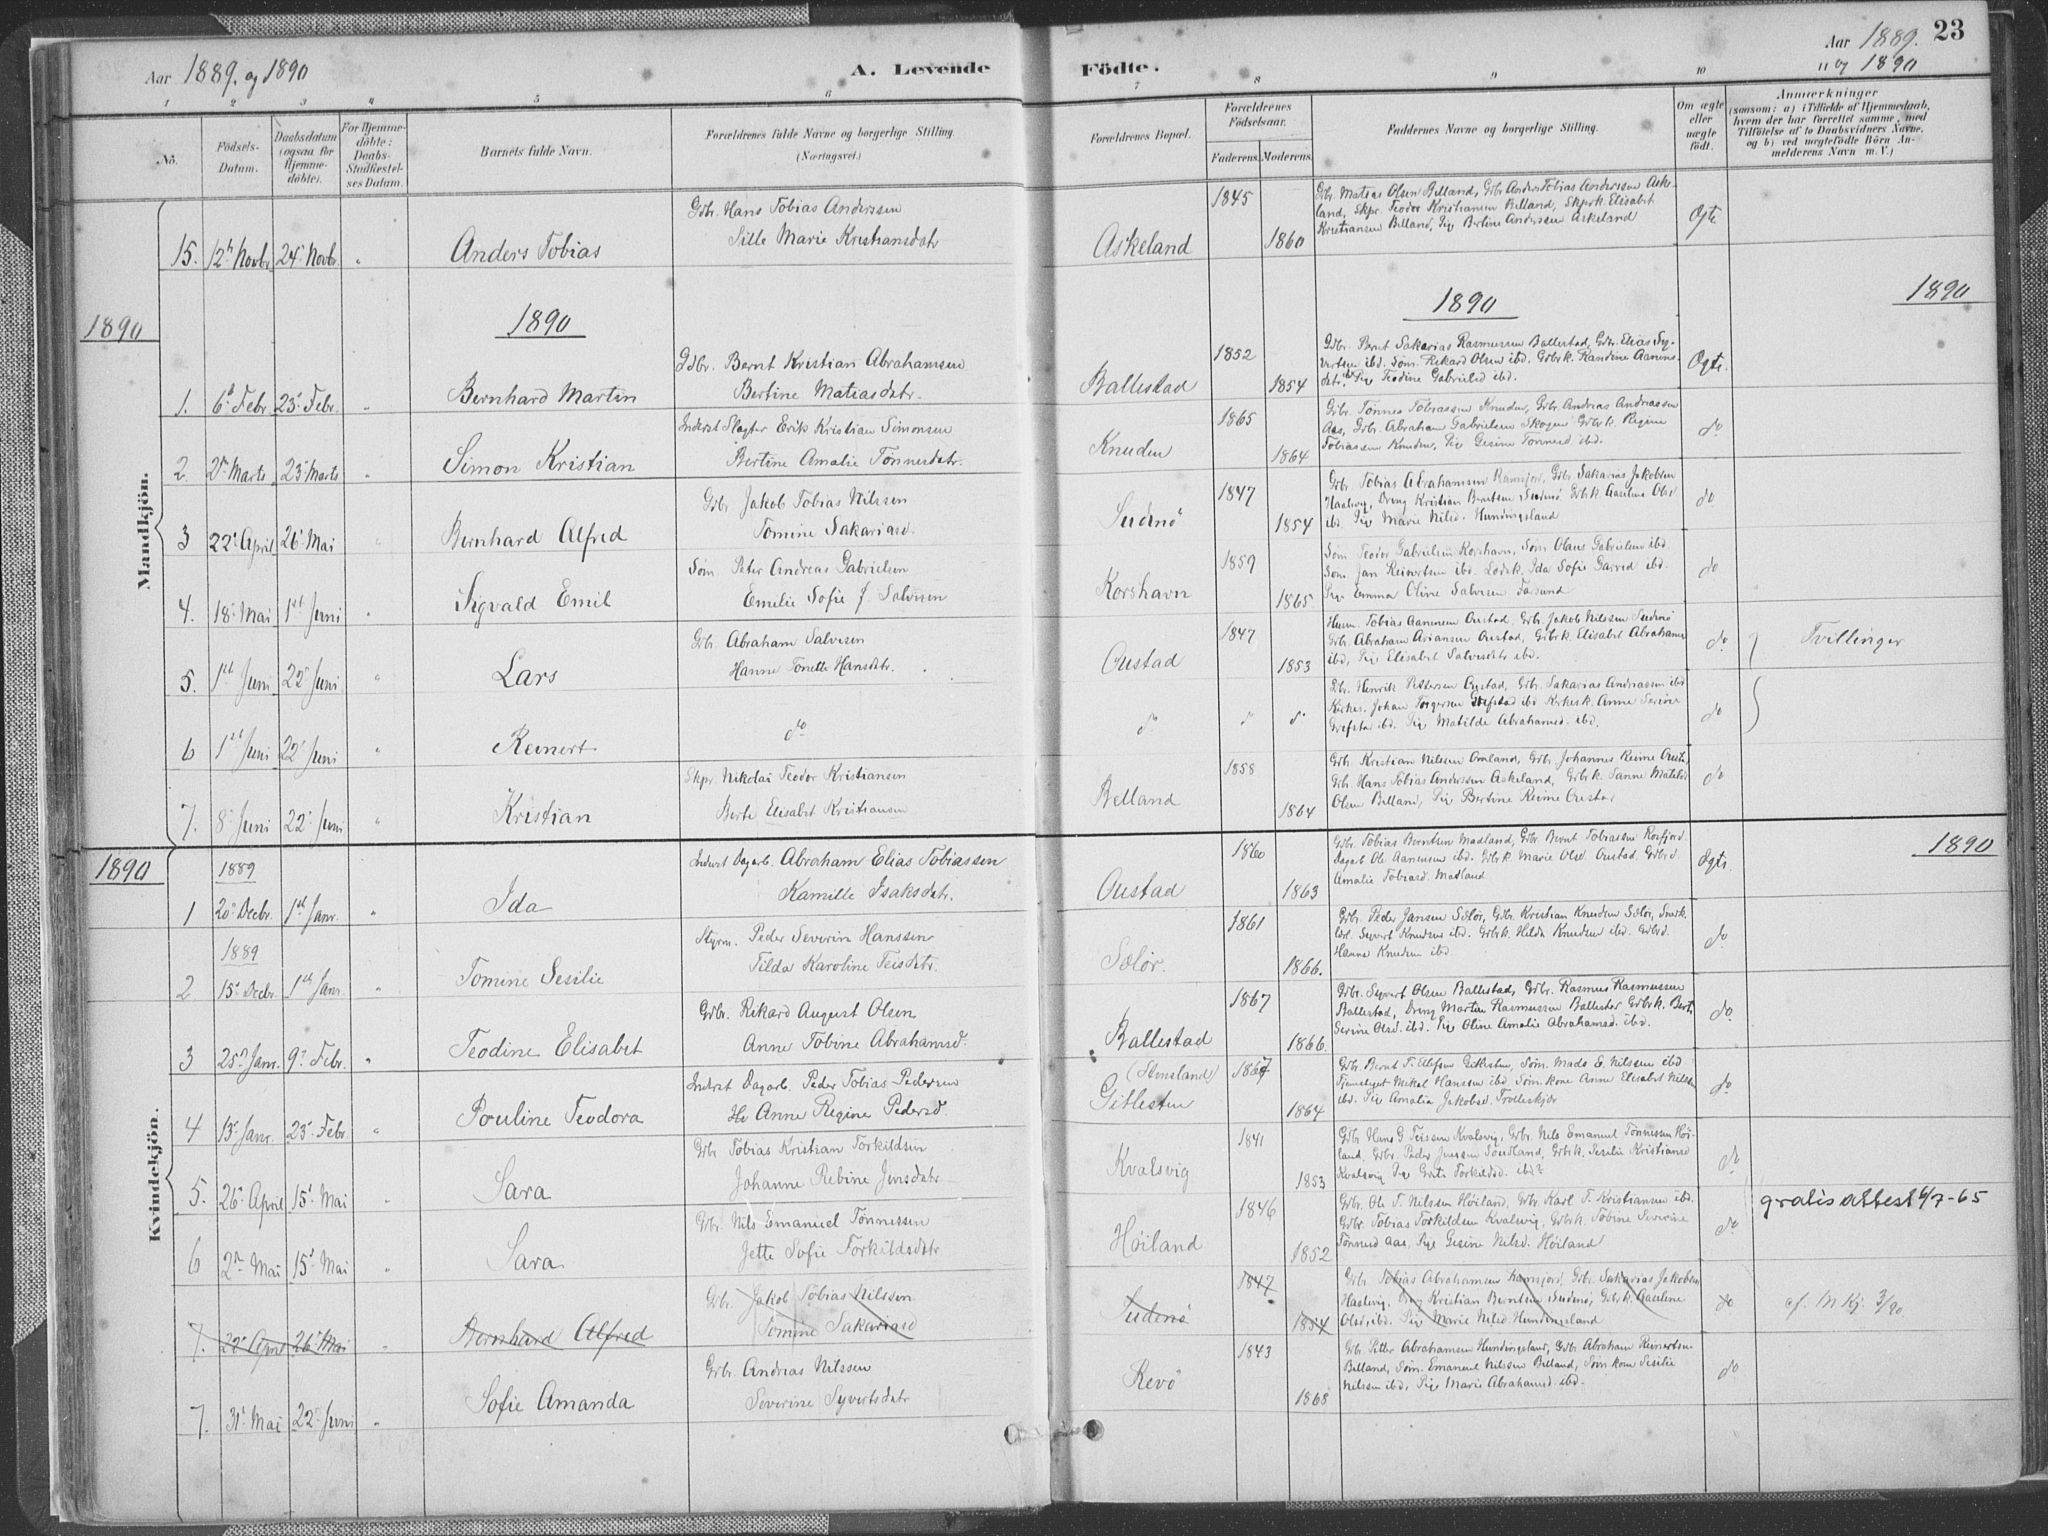 Aar 1889. og 1890
A. Levende Födte.
Aar 1889. og 1890
23
1 2 3 4 5 6 7 8 9 10 11
No.
Födsels-Datum.
Daabsdatum (ogsaa for Hjemmedöbte).
For Hjemmedöbte: Daabs-Stadfæstelses Datum.
Barnets fulde Navn.
Forældrenes fulde Navne og borgerlige Stilling. (Næringsvei.)
Forældrenes Bopæl.
Forældrenes Födselsaar.
Faderens. Moderens.
Faddernes Navne og borgerlige Stilling.
Om ægte eller uægte födt.
Anmærkninger (saasom: a) i Tilfælde af Hjemmedaab, hvem der har forrettet samme, med Tilföielse af to Daabsvidners Navne, og b) ved uægtefödte Börn Anmelderens Navn m. V.)
Mandkjön.
15. 12te Novbr. 24de Novbr. " Anders Tobias
Gdbr. Hans Tobias Anderssen
Sille Marie Kristiansdtr
Askeland 1845 1860
Gbr. Matias Olsen Belland, Gbr. Anders Tobias Anderssen Aske-
land, Skpr. Teodor Kristiansen Belland, Skprk. Elisabet
Kristiansen Belland, Pige Bertine Andersen Askeland
Ægte
1890 1890 1890 1890
1. 6te Febr. 23de Febr. " Bernhard Martin
Gdbr. Bernt Kristian Abrahamsen
Bertine Matiasdtr.
Ballestad 1852 1854
Gdbr. Bernt Sakarias Rasmussen Ballestad, Gdbr. Elias Sy-
vertsen ibd. Søm. Rikard Olsen ibd. Gdbrk. Randine Aanens-
datr. ibd Pige Teodine Gabrielsd ibd.
Ægte.
2. 2den Marts 23de Marts " Simon Kristian
Inderst Slagter Erik Kristian Simonsen
Bertine Amalie Tønnesdtr.
Knuden 1865 1864
Gbr. Tønnes Tobiassen Knuden, Gbr. Andreas Andreassen
Aas, Gbr. Abraham Gabrielsen Skogen Gdbrk. Regine
Tobiassen Knuden, Pige Gesine Tønnesd ibd.
do
3 22de April 26de Mai " Bernhard Alfred
Gbr Jakob Tobias Nilssen
Tomine Sakariasd.
Sudenø 1847 1854
Gbr. Tobias Abrahamsen Ramsjord, Gbr. Sakarias Jakobsen
Haalvig, Dreng Kristian Berntsen Sudenø Gbrk Aaseline Olsd
ibd. Pige Marie Nilsd. Hundingsland
do
4. 18de Mai 1ste Juni " Sigvald Emil
Søm Peter Andreas Gabrielsen
Emilie Sofie J. Salvesen
Korshavn 1859 1865
Søm Teodor Gabrielsen Korshavn, Søm. Olaus Gabrielsen ibd.
Søm. Jan Reinertsen ibd. Lodsk. Ida Sofie Garred ibd.
Pige Emma Oline Salvesen Farsund
do
5. 1ste Juni 22de Juni " Lars
Gbr. Abraham Salvesen
Hanne Tonette Hansdtr.
Oustad 1847 1853
Husm. Tobias Aanensen Oustad, Gbr. Jakob Nilssen Sudenø
Gbr. Abraham Ariansen Oustad, Gdbrk. Elisabet Abrahamsen
ibd, Pige Elisabet Salvesdtr ibd.
do Tvillinger
6 1ste Juni 22de Juni " Reinert
do do do do
Gbr. Henrik Pettersen Oustad, Gbr. Sakarias Andreassen ibd
Kirkes. Johan Torgersen Grefstad ibd Kirkesk. Anne Serine
Grefsta ibd. Pige Matilde Abrahamsd. ibd.
do
7. 8de Juni 22de Juni " Kristian
Skpr. Nikolai Teodor Kristiansen
Berte Elisabet Kristiansen
Belland 1858 1864
Gbr. Kristian Nilssen Omland, Gbr. Johannes Reime Oust.
Gbr. Hans Tobias Anderssen Askeland, Gdbrk. Sanne Matilde
Olsen Belland, Pige Bertine Reime Oustad
do
Kvindekjön.
1890 1889 1890
1 20de Decbr. 1ste Janr. " Ida
Inderst Dagarb. Abraham Elias Tobiassen
Kamille Isaksdtr.
Oustad 1860 1863
Gbr. Tobias Berntsen Madland, Gbr. Bernt Tobiassen Rosfjord.
Dagarb Ole Aanensen ibd. Gbrk. Marie Olsd Oustad, Gbrd.
Amalie Tobiasd. Madland
Ægte.
1889
2 15de Decbr. 1ste Janr. " Tomine Sesilie
Styrm. Peder Severin Hanssen
Tilda Karoline Teisdtr.
Sælør. 1861 1866.
Gbr. Peder Jansen Sælør, Gdbr. Kristian Knudsen Sælør,
Syvert Knudsen ibd. Gdbrk. Hilda Knudsen ibd. Gbrd.
Hanna Knudsen ibd.
do
3 25de Janr. 9de Febr. " Teodine Elisabet
Gdbr. Rikard August Olsen
Anne Tobine Abrahamsd.
Ballestad 1867 1866.
Gdbr. Syvert Olsen Ballestad, Gdbr. Rasmus Rasmussen
Ballestad, Dreng Martin Rasmussen Ballestad Gdbrk. Berte
Serine Olsd. ibd. Pige Oline Amalie Abrahamsd. ibd.
do
4 13de Janr. 23de Febr. " Pouline Teodora
Inderst Dagarb. Peder Tobias Pedersen
Hu Anne Regine Pedersd.
(Stensland) Gitlesten 1867 1864
Gbr. Bernt T. Ellefsen Gitlesten, Søm. Mads E. Nilssen ibd
Tjenestegut Mikal Hanssen ibd Sømkone Anne Elisabet Nilssen
ibd. Pige Amalia Jakobsd. Trolleskjær
do
5. 26de April 15de Mai " Sara
Gbr Tobias Kristian Torkildsen
Johanne Rebine Jensdatr
Kvalsvig 1841 1853
Gdbr Hans G Teissen Kvalsvig, Gbr. Nils Emanuel Tønnessen Høi-
land, Gdbr. Peder Jenssen Sandland, Gdbrk. Sesilie Kristiansd
Kvalsvig Pige Grete Torkildsd. ibd.
do
6 2den Mai 15de Mai " Sara
Gbr. Nils Emanuel Tønnessen
Jette Sofie Torkildsdtr
Høiland 1846 1852
Gbr. Ole T. Nilssen Høiland, Gbr. Karl T. Kristiansen ibd.
Gdbr. Tobias Torkildsen Kvalsvig, Gdbrk. Tobine Severine
Tønnesd Aas, Pige Gesine Nilsd. Høiland
do gratis attest 6/7-65
7. 22de April 26de Mai " Bernhard Alfred
Gbr. Jakob Tobias Nilssen
Tomine Sakariasd
Sudenø 1847 1854
Gbr. Tobias Abrahamsen Ramsjord, Gbr. Sakarias Jakobsen
Haalvig, Dreng Kristian Berntsen Sudenø, Gdbrk. Aaseline
Olsd. ibd. Pige Marie Nilsd. Hundingsland
do cf. M Kj. 3/90
7. 31te Mai 22de Juni " Sofie Amanda
Gbr. Andreas Nilssen
Severine Syvertsdatr
Revø 1843 1868
Gbr Petter Abrahamsen Hundingsland, Gdbr. Abraham Reinertsen
Belland, Søm. Emanuel Nilssen Belland, Sømkone Sesilie
Nilssen ibd, Pige Marie Abrahamsd. ibd.
do